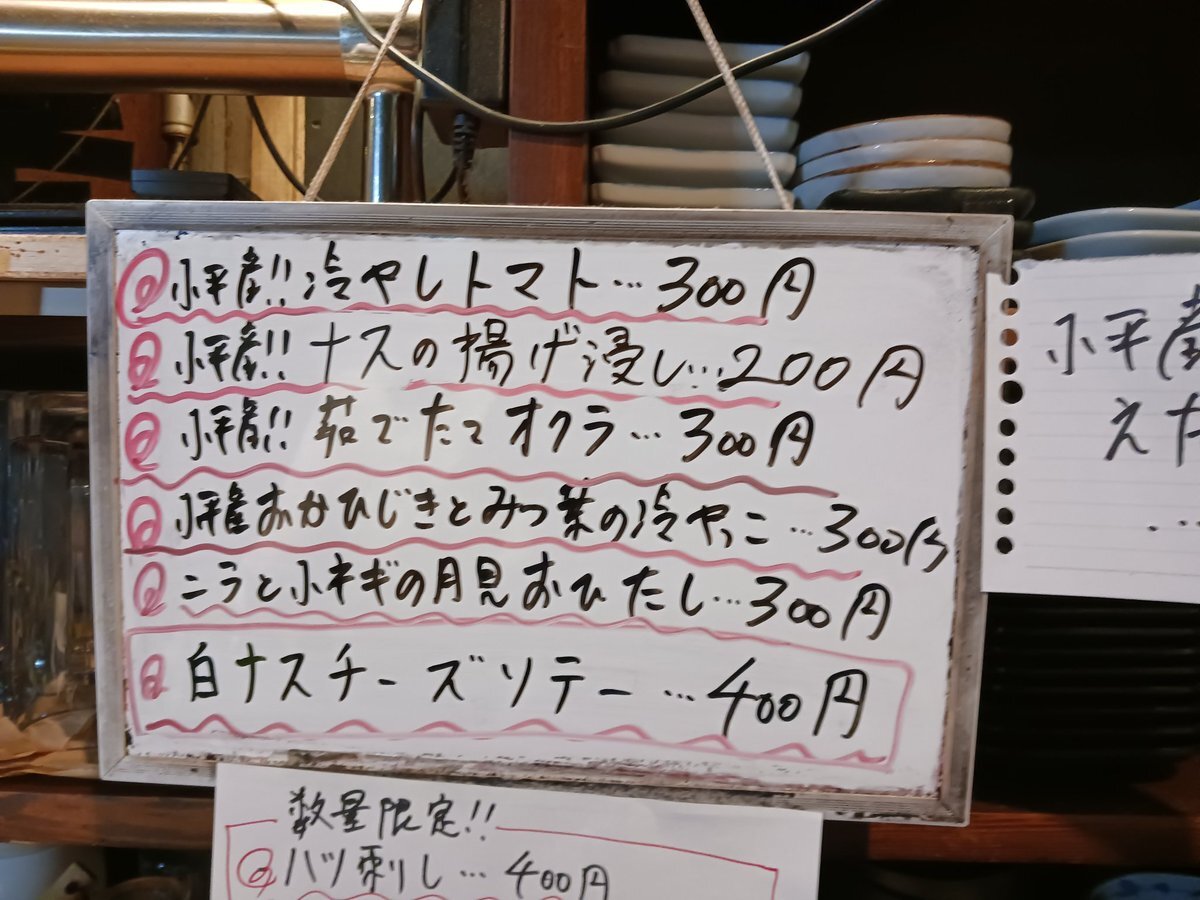 小平産!!冷やしトマト…300円
小平産!!ナスの揚げ浸し…200円
小平産!!茹でたてオクラ…300円
小平産おかひじきとみつ葉の冷やっこ…300円
ニラと小ネギの月見おひたし…300円
白ナスチーズソテー…400円
数量限定!!
ハツ刺し…400円
小平産
えだ
…